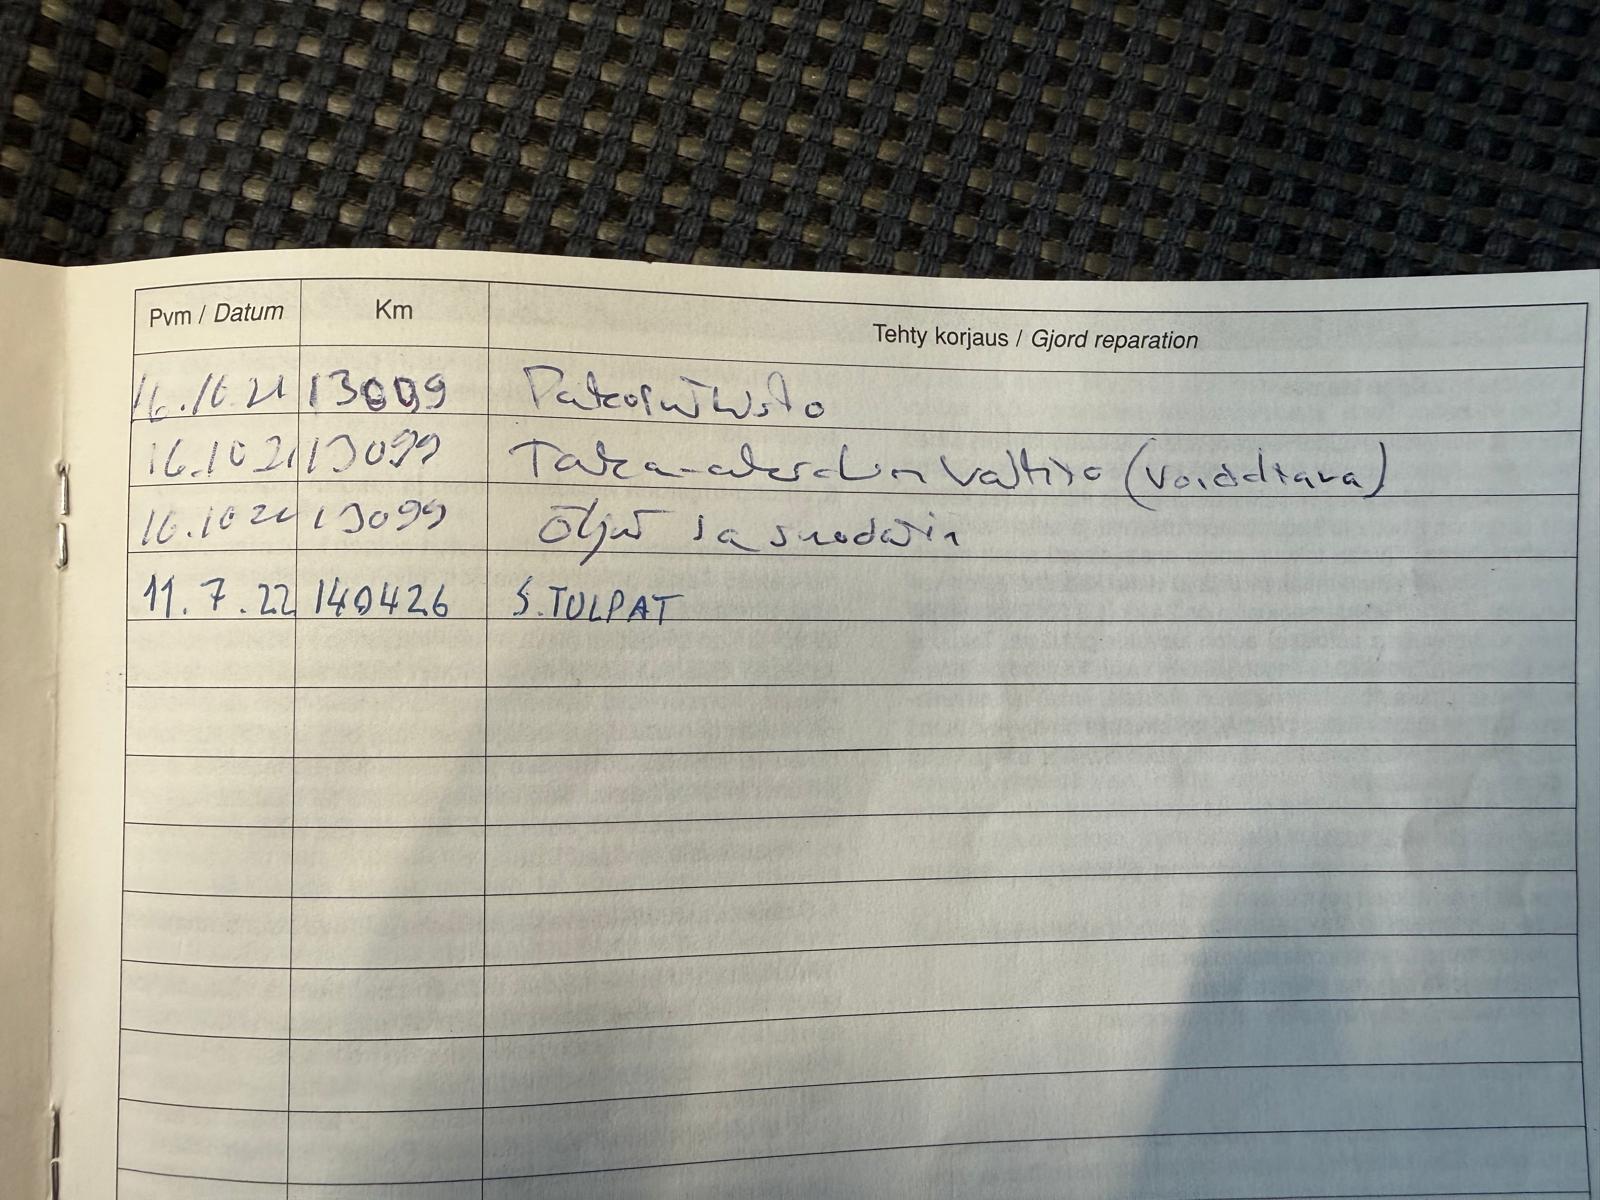 Pvm / Datum Km Tehty korjaus / Gjord reparation
16.10.21 13099 Pakoputkisto
16.10 21 13099 Taka-akselin vaihto (Voideltava)
16.10 21 13099 Öljyt ja suodatin
11.7.22 140426 S.TULPAT